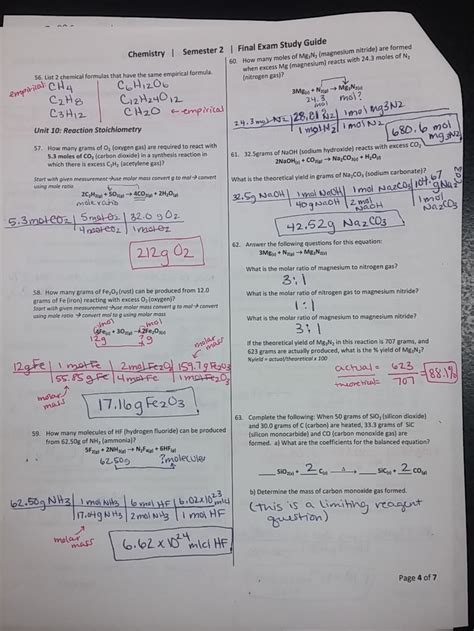 Chemistry | Semester 2 | Final Exam Study Guide
56. List 2 chemical formulas that have the same empirical formula.
empirical CH4 C6H12O6
C2H8 C12H24O12
C3H12 CH2O ← empirical
Unit 10: Reaction Stoichiometry
57. How many grams of O2 (oxygen gas) are required to react with
5.3 moles of CO2 (carbon dioxide) in a synthesis reaction in
which there is excess C2H2 (acetylene gas)?
Start with given measurement →use molar mass convert g to mol → convert
using mole ratio
2C2H2(g) + 5O2(g) → 4CO2(g) + 2H2O(g)
mole ratio
5.3 mol CO2 | 5 mol O2 | 32.0 g O2
4 mol CO2 | 1 mol O2
212g O2
58. How many grams of Fe2O3 (rust) can be produced from 12.0
grams of Fe (iron) reacting with excess O2 (oxygen)?
Start with given measurement →use molar mass convert g to mol → convert
using mole ratio → convert mol to g using molar mass
mol mol
4Fe(s) + 3O2(g) → 2Fe2O3(s)
12g ?g
12g Fe | 1 mol Fe | 2 mol Fe2O3 | 159.7g Fe2O3
55.85 g Fe | 4 mol Fe | 1 mol Fe2O3
molar
mass
17.16g Fe2O3
59. How many molecules of HF (hydrogen fluoride) can be produced
from 62.50g of NH3 (ammonia)?
5F2(g) + 2NH3(g) → N2F4(g) + 6HF(g)
62.50g ?molecules
62.50g NH3 | 1 mol NH3 | 6 mol HF | 6.02x10^23 mlcl
17.04g NH3 | 2 mol NH3 | 1 mol HF
molar
mass
6.62 x 10^24 mlcl HF
60. How many moles of Mg3N2 (magnesium nitride) are formed
when excess Mg (magnesium) reacts with 24.3 moles of N2
(nitrogen gas)?
3Mg(s) + N2(g) → Mg3N2(s)
24.3 mol?
24.3 mol N2 | 28.01 N2 | 1 mol Mg3N2
1 mol N2 | 1 mol N2
680.6 mol
Mg3N2
61. 32.5grams of NaOH (sodium hydroxide) reacts with excess CO2
2NaOH(s) + CO2(g) → Na2CO3(s) + H2O(l)
What is the theoretical yield in grams of Na2CO3 (sodium carbonate)?
32.5g NaOH | 1 mol NaOH | 1 mol Na2CO3 | 104.67
40g NaOH | 2 mol NaOH | 1 mol Na2CO3
42.52g Na2CO3
62. Answer the following questions for this equation:
3Mg(s) + N2(g) → Mg3N2(s)
What is the molar ratio of magnesium to nitrogen gas?
3:1
What is the molar ratio of nitrogen gas to magnesium nitride?
1:1
What is the molar ratio of magnesium to magnesium nitride?
3:1
If the theoretical yield of Mg3N2 in this reaction is 707 grams, and
623 grams are actually produced, what is the % yield of Mg3N2?
%yield = actual/theoretical x 100
actual = 623
theoretical= 707 = 88.1%
63. Complete the following: When 50 grams of SiO2 (silicon dioxide)
and 30.0 grams of C (carbon) are heated, 33.3 grams of SiC
(silicon monocarbide) and CO (carbon monoxide gas) are
formed. a) What are the coefficients for the balanced equation?
SiO2(s) + 2 C(s) → SiC(s) + 2 CO(g)
b) Determine the mass of carbon monoxide gas formed.
(This is a limiting reagent
question)
Page 4 of 7